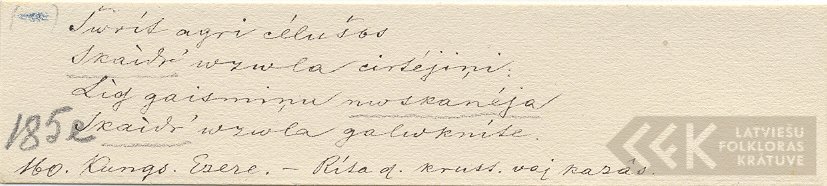 Šwrīt agri cēlušos
Skaidr' wzwla cirtējiņi;
Līg gaismiņu nwskanēja
1852 Skaidr' wzwla galwknīte.
160. Kungs. Ezere. – Rīta d. krust. vaj kazās.
LATVIEŠU
FOLKLORAS
KRĀTUVE